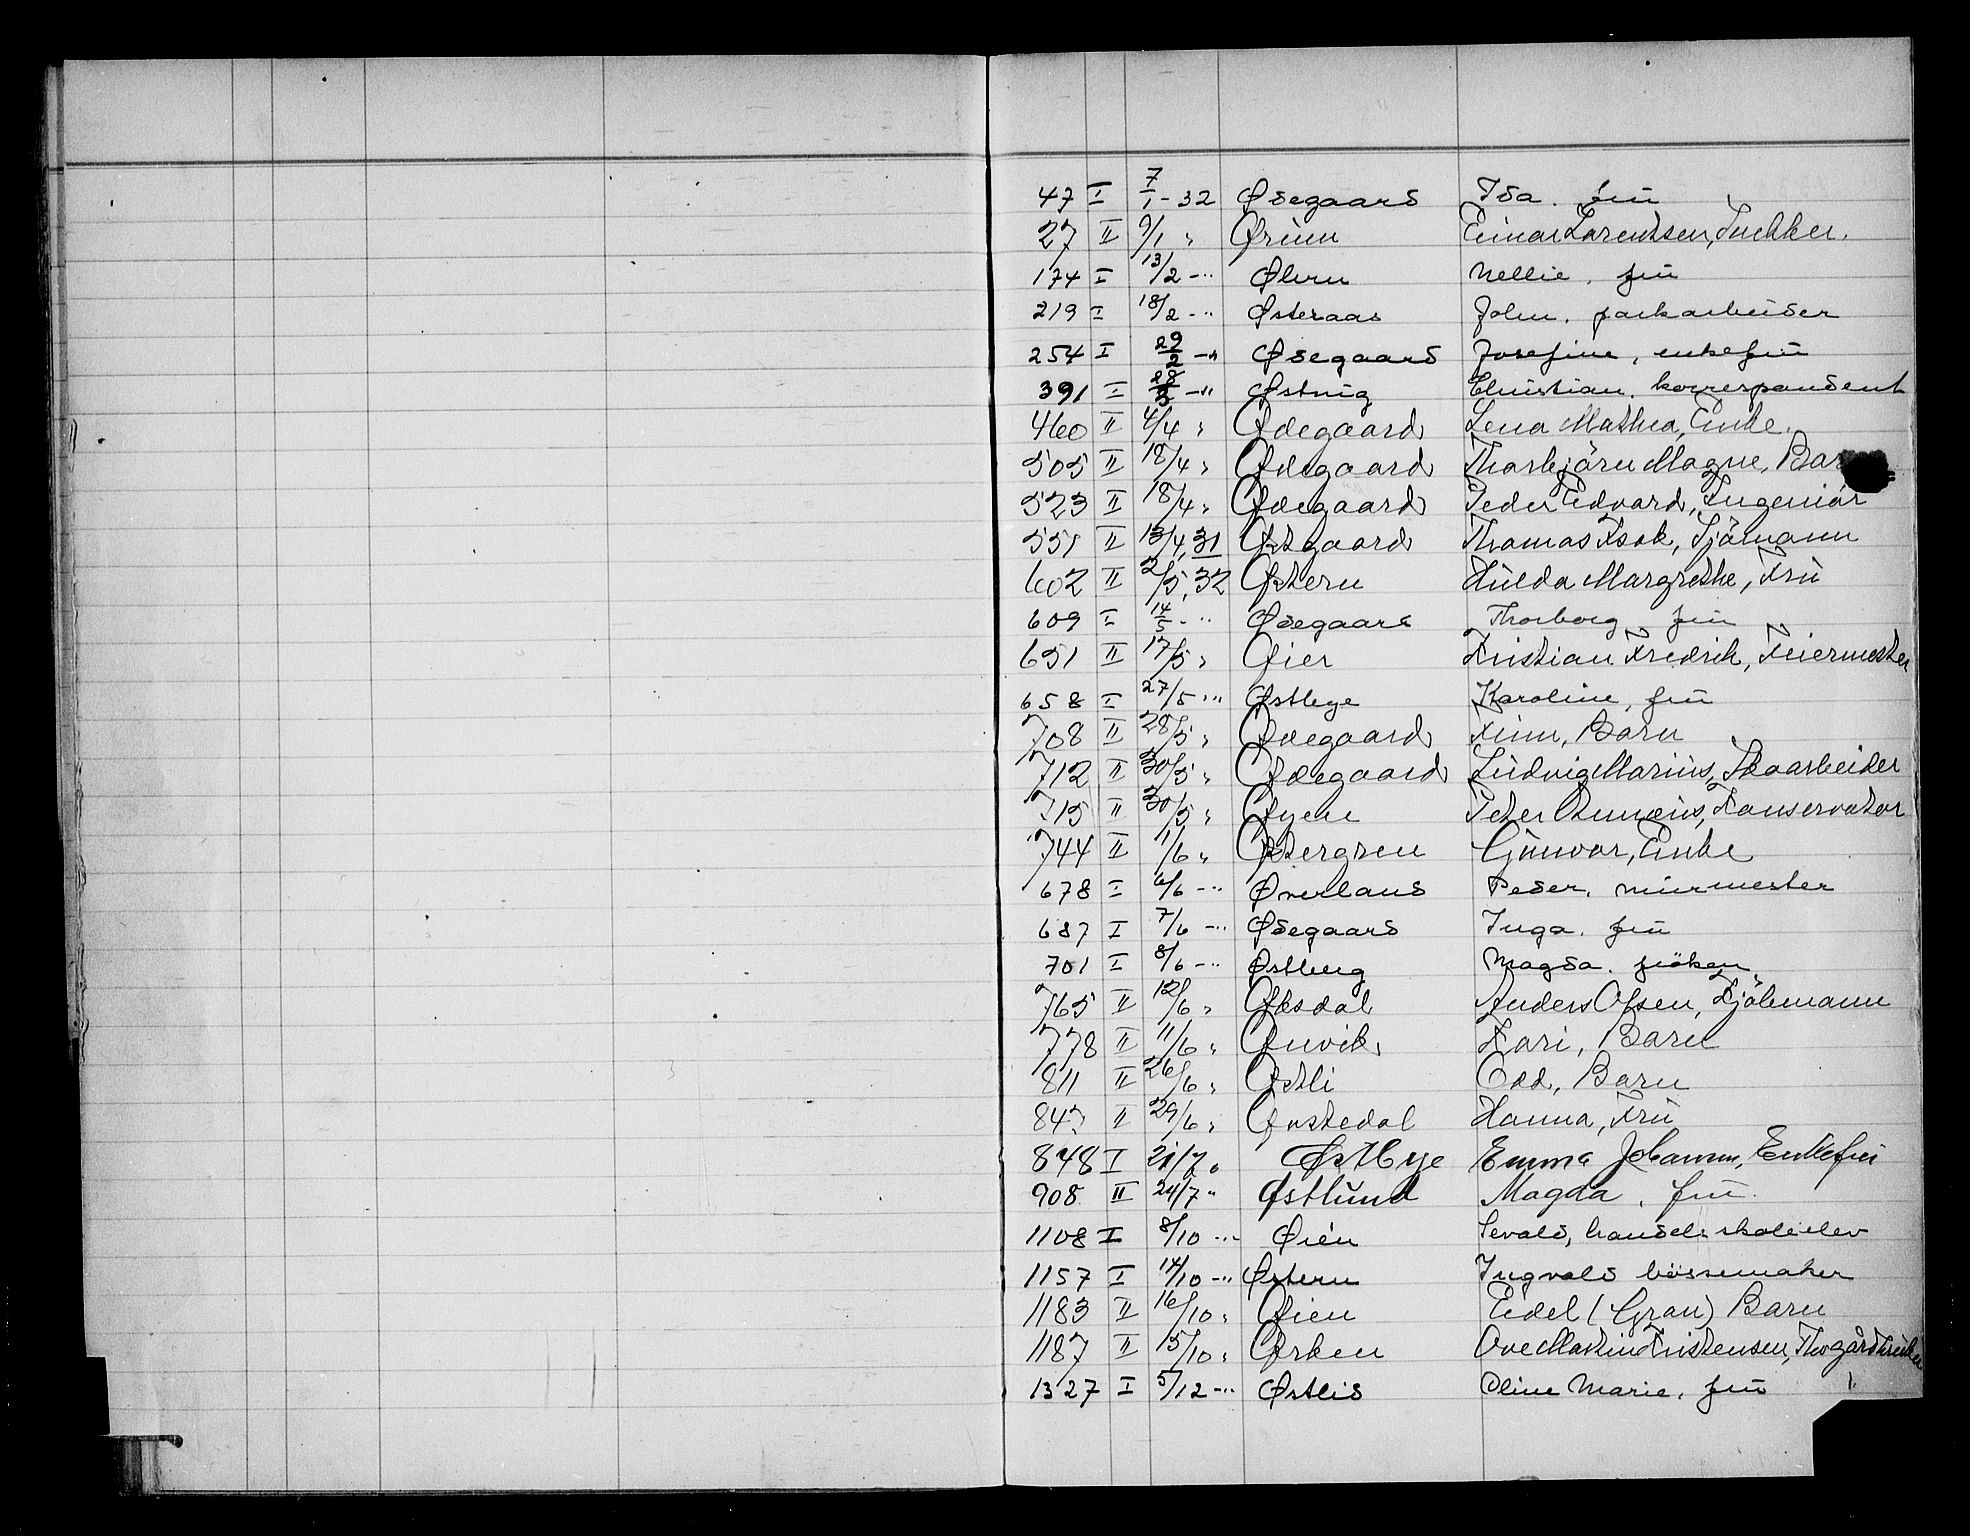 47 I 7/1-32 Ødegaard Ida. frü
27 II 9/1 " Ørüm Einar Lorentsen, Snekker.
174 I 13/2 -"- Ølern Nellie. frü
219 I 18/2 -"- Østeraas John. parkarbeider
254 I 29/2 -"- Ødegaard Josefine, enkefrü
391 I 28/3 -"- Østvig Christian. korrespondent
460 II 4/4 " Ødegaard Lena Mathea, Enke.
505 II 18/4 " Ødegaard Thorbjörn Magne, Bar
523 II 18/4 " Ødegaard Peder Edvard, Ingeniör
551 II 13/4, 31 Østgaard Thomas Isak, Sjömann
602 II 2/5, 32 Østern Hülda Margrethe, Frü
609 I 14/5 -"- Ødegaard Thorborg frü
651 II 17/5 " Øier Kristian Fredrik, Feiermester
658 I 27/5 -"- Østbye Karoline, frü
708 II 28/5 " Ødegaard Finn, Barn
712 II 30/5 " Ødegaard Lüdvig Marius, Skoarbeider
715 II 30/5 " Øyen Peter Annæus, Konservator
744 II 1/6 " Østergren Günvor, Enke
678 I 6/6 -"- Øverland Peder. mürmester
687 I 7/6 -"- Ødegaard Inga. frü
701 I 8/6 -"- Østberg Magda. fröken.
765 II 12/6 " Øksdal Anders Olsen, Kjöbmann
778 II 11/6 " Ønvik Kari, Barn
811 II 26/6 " Østli Odd, Barn
843 II 29/6 " Øvstedal Hanna, Frü
848 I 21/7 " Østbye Emma Johanne, Enkefrü
908 II 24/7 " Østlünd Magda. frü.
1108 I 8/10 -"- Øien Sevald, handelsskoleelev
1157 I 14/10 -"- Østern Ingvald bössemaker
1183 II 16/10 " Øien Eidel (Gran) Barn
1187 II 15/10 " Ørken Ove Martin Kristensen,
1327 I 5/12 -"- Østlid Oline Marie. frü